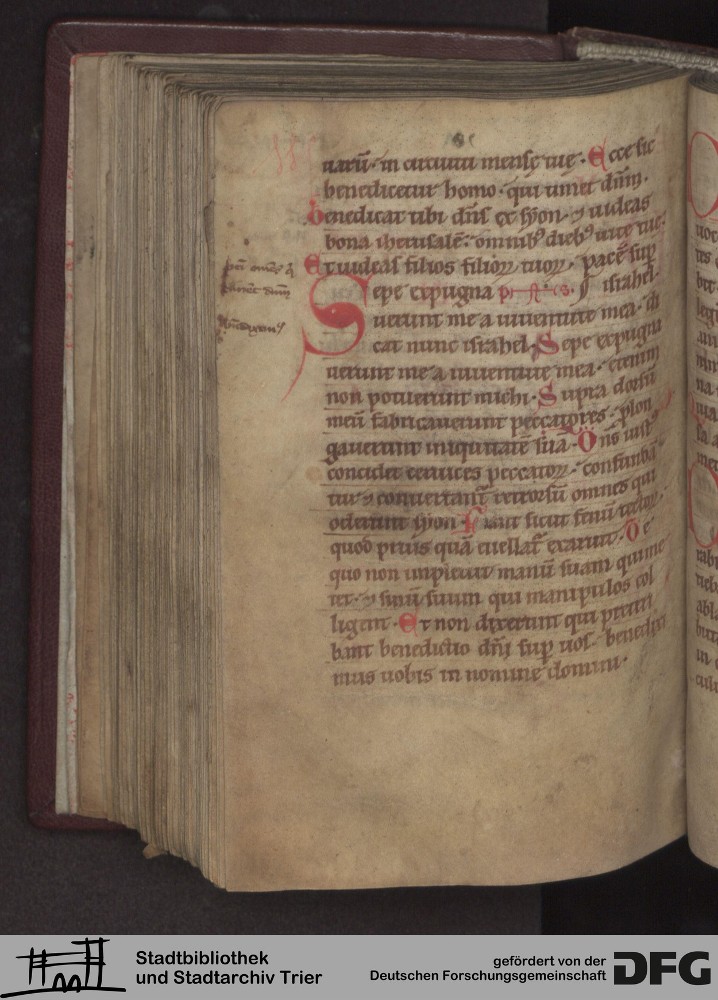 uarū· in circuitu mensę tuę· Ecce sic
benedicetur homo· qui timet dn̄m·
Benedicat tibi dn̄s ex syon· ⁊ uideas
bona iherusalē· omnibꝰ diebꝰ uite tuę·
Et uideas filios filioꝝ tuoꝝ· pacē sup
Sepe expugna israhel·
uerunt me a iuuentute mea· di
cat nunc israhel· Sepe expugna
uerunt me a iuuentute mea· etenim
non potuerunt michi· Supra dorsū
meū fabricauerunt peccatores· plon
gauerunt iniquitatē suā· Dn̄s iustꝰ
concidet ceruices peccatoꝝ· confunda
tur ⁊ conuertant̄ retrorsū omnes qui
oderunt syon· Fiant sicut fenū tectoꝝ·
quod prius quā euellat̄ exaruit· De
quo non impleuit manū suam qui me
tet· ⁊ sinū suum qui manipulos col
ligent· Et non dixerunt qui preteri
bant benedictio dn̄i sup uos· benedixi
mus uobis in nomine domini·
Stadtbibliothek
und Stadtarchiv Trier
gefördert von der
Deutschen Forschungsgemeinschaft
DFG